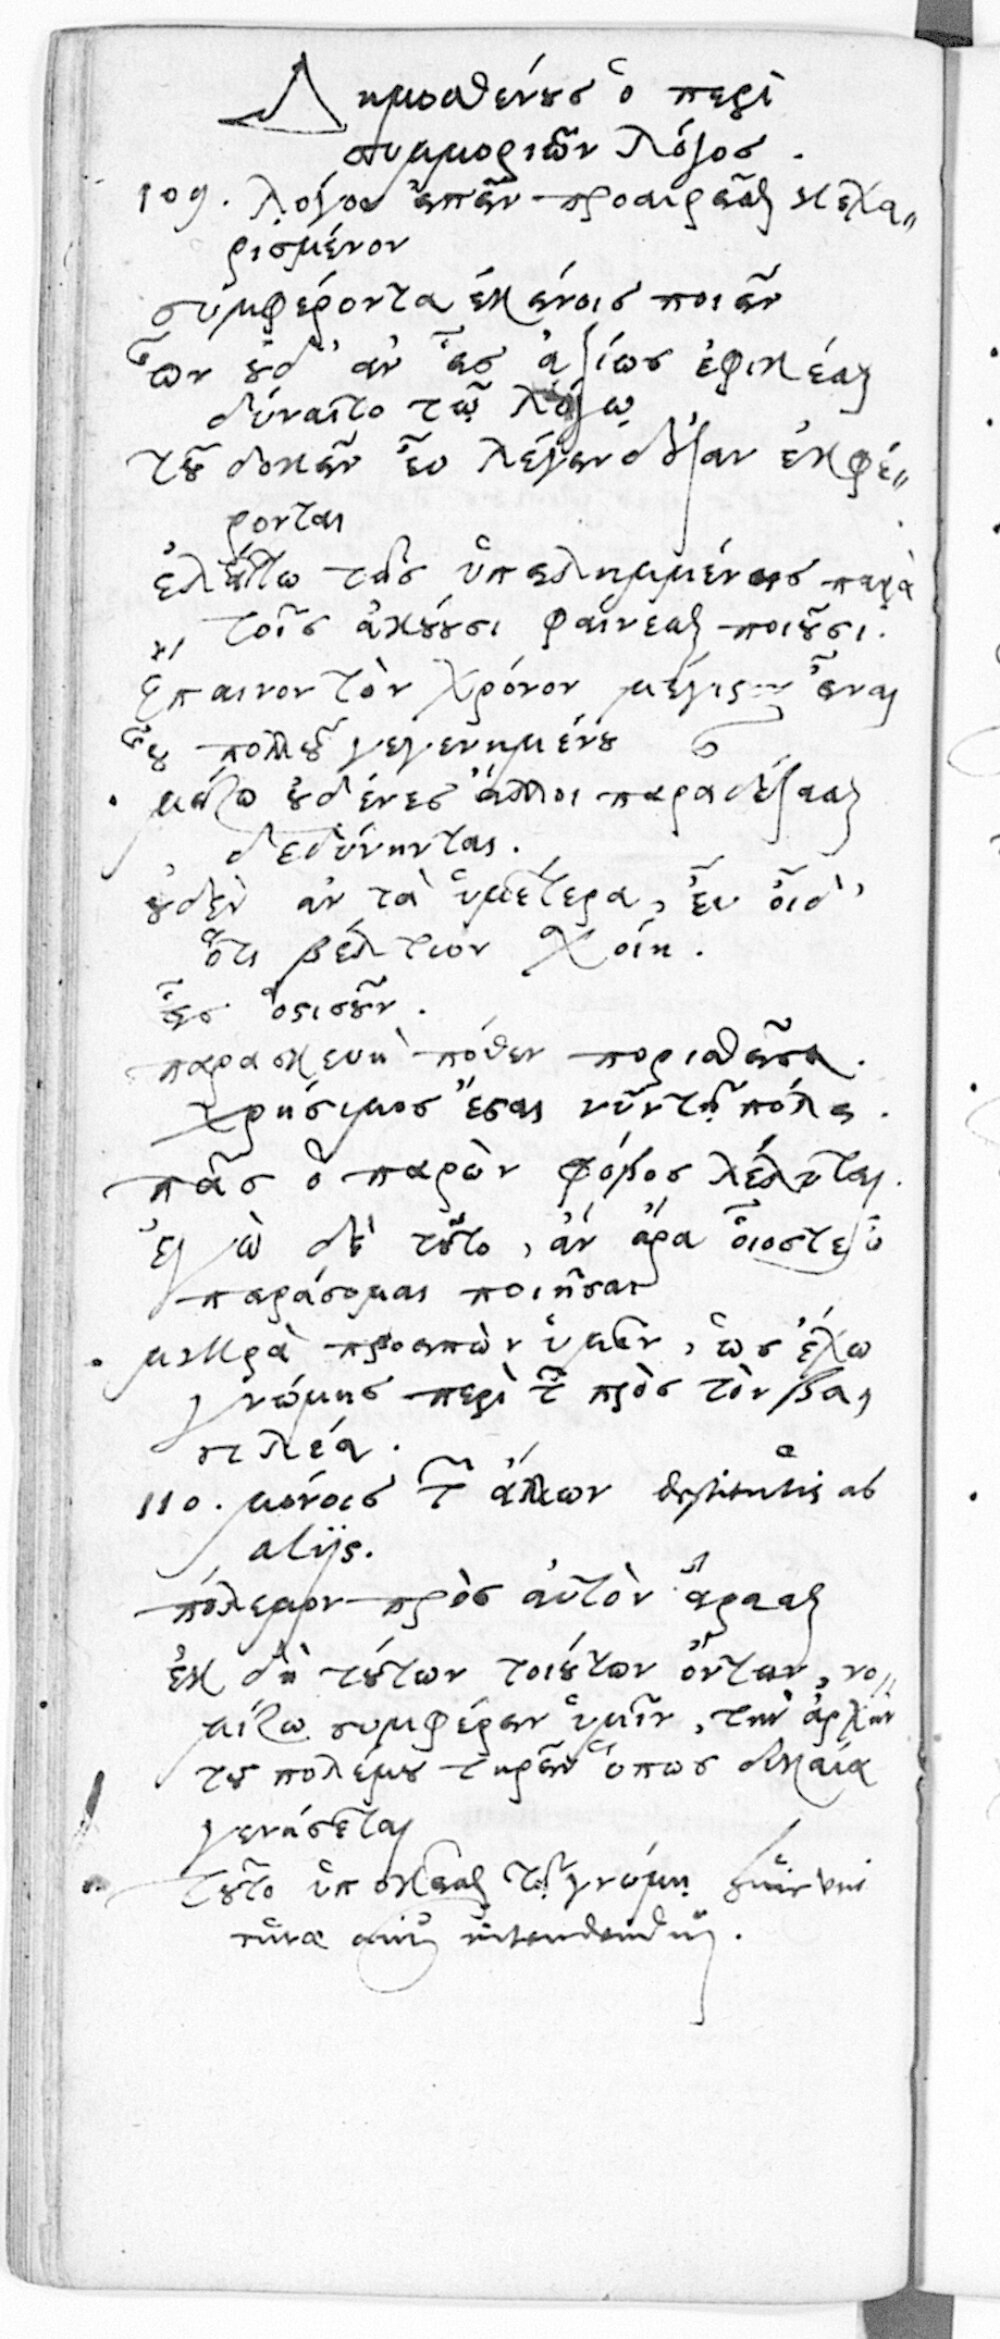 Δημοσθένους ὁ περὶ
συμμοριῶν λόγος.
109. λόγον εἰπεῖν προαιρεῖσθαι κεχα„
ρισμένον
συμφέροντα ἐκείνοις ποιεῖν
ὧν οὐδ' ἂν εἷς ἀξίως ἐφικέσθαι
δύναιτο τῷ λόγῳ
τοῦ δοκεῖν εὖ λέγειν δόξαν ἐκφέ„
ρονται
ἐλάττω τῆς ὑπειλημμένης παρὰ
τοῖς ἀκούουσι φαίνεσθαι ποιοῦσι.
ἔπαινον τὸν χρόνον μέγιστον εἶναι
οὗ πολλοῦ γεγενημένου
μείζω οὐδένες ἄλλοι παραδείξασθαι
δεδύνηνται.
οὐδὲν ἂν τὰ ὑμέτερα, εὖ οἶδ'
ὅτι βέλτιον σχοίη.
εἷς ὁστισοῦν.
παρασκευὴ πόθεν πορισθεῖσα
χρήσιμος ἔσται νῦν τῇ πόλει.
πᾶς ὁ παρὼν φόβος λέλυται.
ἐγὼ δὲ τοῦτο, ἂν ἄρα οἷός τε ὦ
πειράσομαι ποιῆσαι
μικρὰ προειπὼν ὑμῖν, ὡς ἔχω
γνώμης περὶ τῶν πρὸς τὸν βα„
σιλέα.
110. μόνοις τῶν ἄλλων destitutis ab
alijs.
πόλεμον πρὸς αὐτὸν ἄρασθαι
ἐκ δὴ τούτων τοιούτων ὄντων, νο„
μίζω συμφέρειν ὑμῖν, τὴν ἀρχὴν
τοῦ πολέμου τηρεῖν ὅπως δικαία
γενήσεται
τοῦτο ὑπ τῇ γνώμῃ